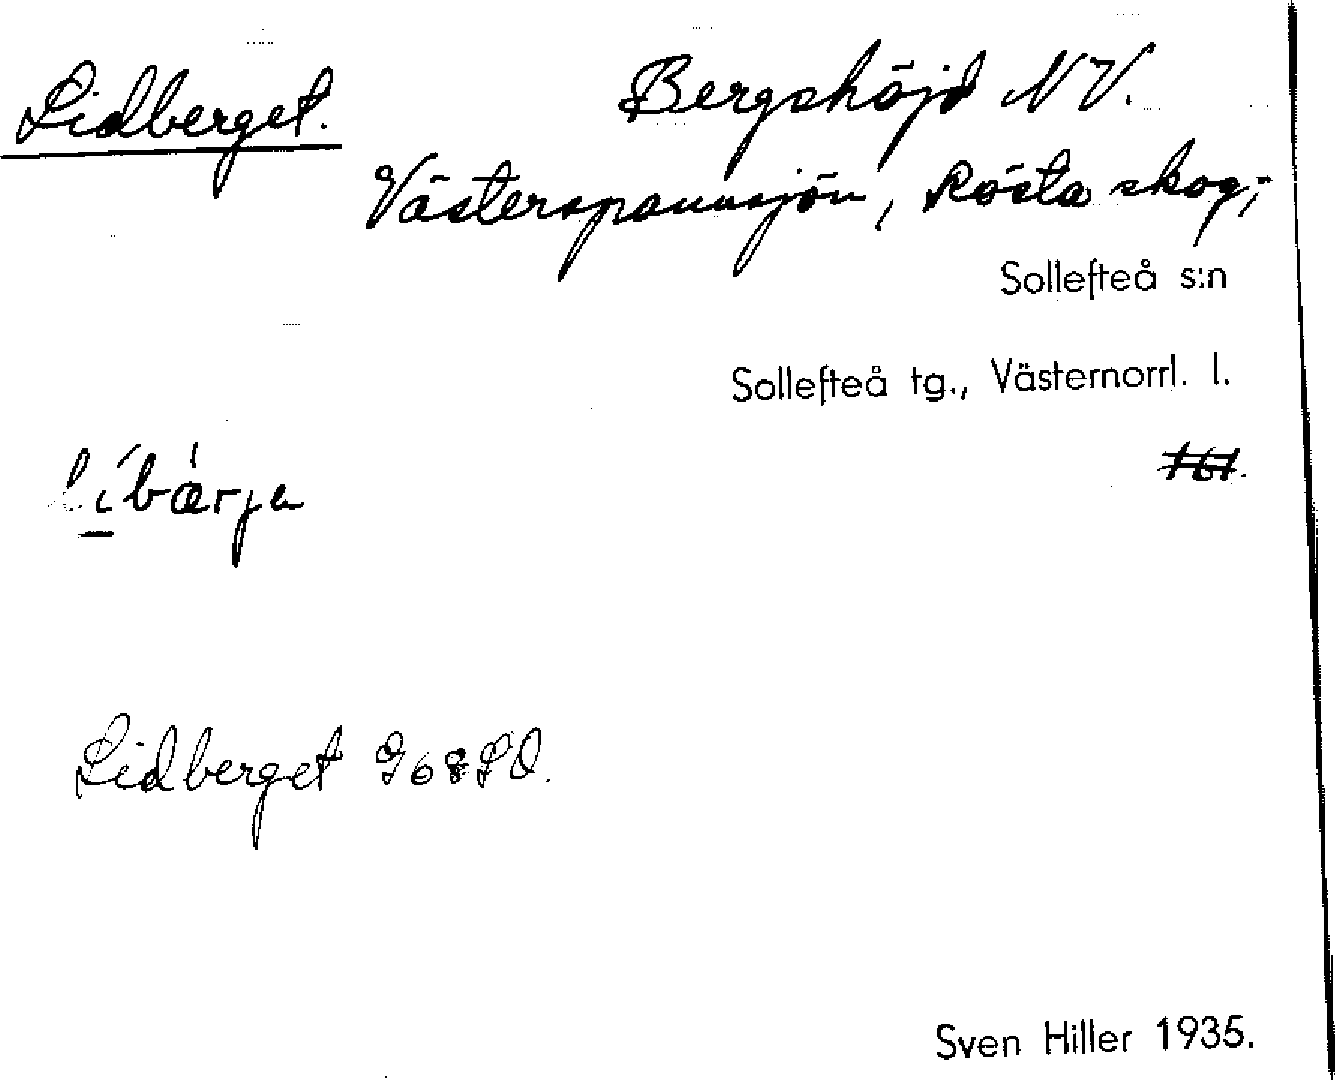 Lidberget. Bergshöjd NV.
Västerspannsjön, Rösta skog;
Sollefteå s:n
Sollefteå tg., Västernorrl. l.
161.
Lidberget G68SO.
Sven Hiller 1935.